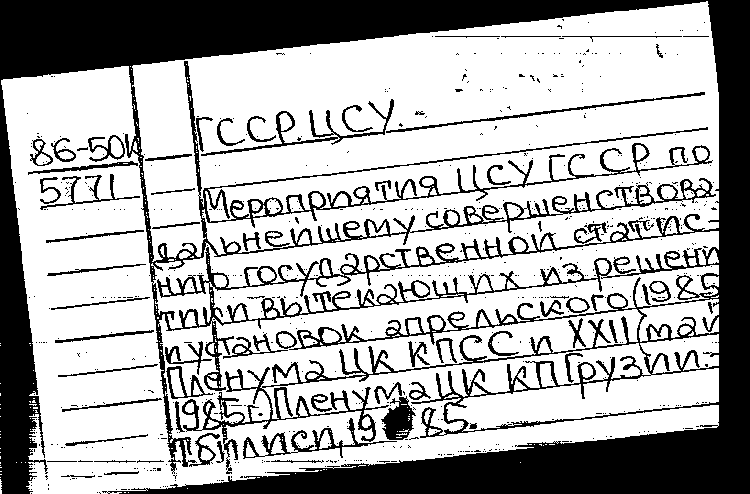 ГССР. ЦСУ.
86-50К
5771
Мероприятия ЦСУ ГССР по
дальнейшему совершенствова-
нию государственной статис-
тики, вытекающих из решени
и установок апрельского (1985
Пленума ЦК КПСС и XXII (май
1985г.) Пленума ЦК КП Грузии.-
Тбилиси, 1985.